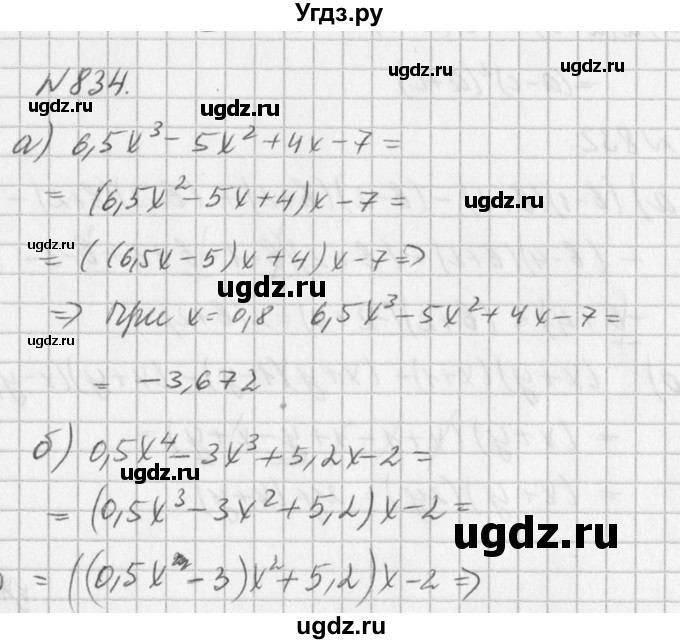 Угдз.ру
№834.
ugdz.ru
ugdz.ru
а) 6,5x³ - 5x² + 4x - 7 =
= (6,5x² - 5x + 4)x - 7 =
ugdz.ru
ugdz.ru
ugdz.ru
= ((6,5x - 5)x + 4)x - 7 ⇒
ugdz.ru
⇒ при x = 0,8 6,5x³ - 5x² + 4x - 7 =
ugdz.ru
= -3,672
б) 0,5x⁴ - 3x³ + 5,2x - 2 =
ugdz.ru
= (0,5x³ - 3x² + 5,2)x - 2 =
ugdz.ru
= ((0,5x - 3)x² + 5,2)x - 2 ⇒
ugdz.ru